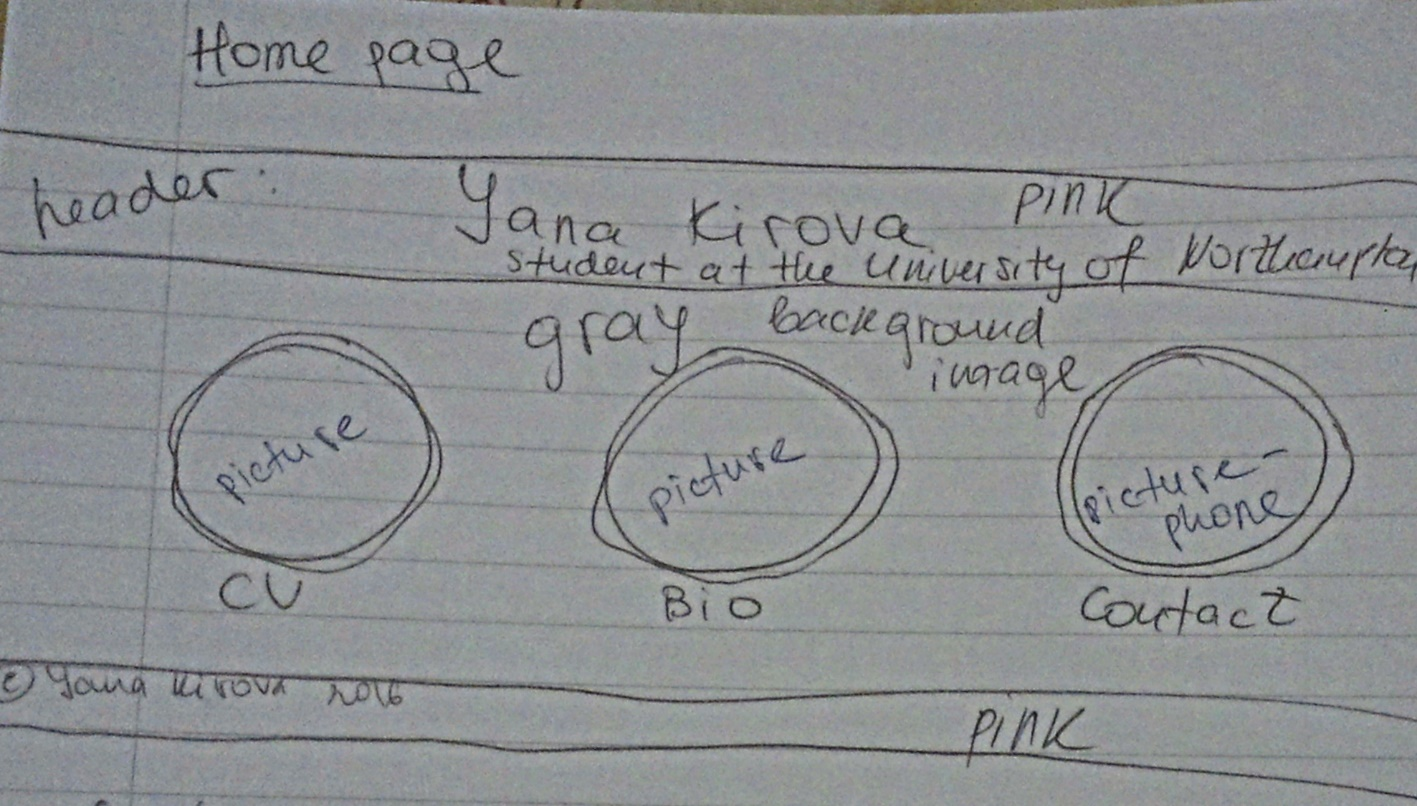 Home page
header: Yana Kirova PINK
student at the University of Northampton
gray background
image
picture
picture
picture-
phone
CV
Bio
Contact
© Yana Kirova 2016
PINK